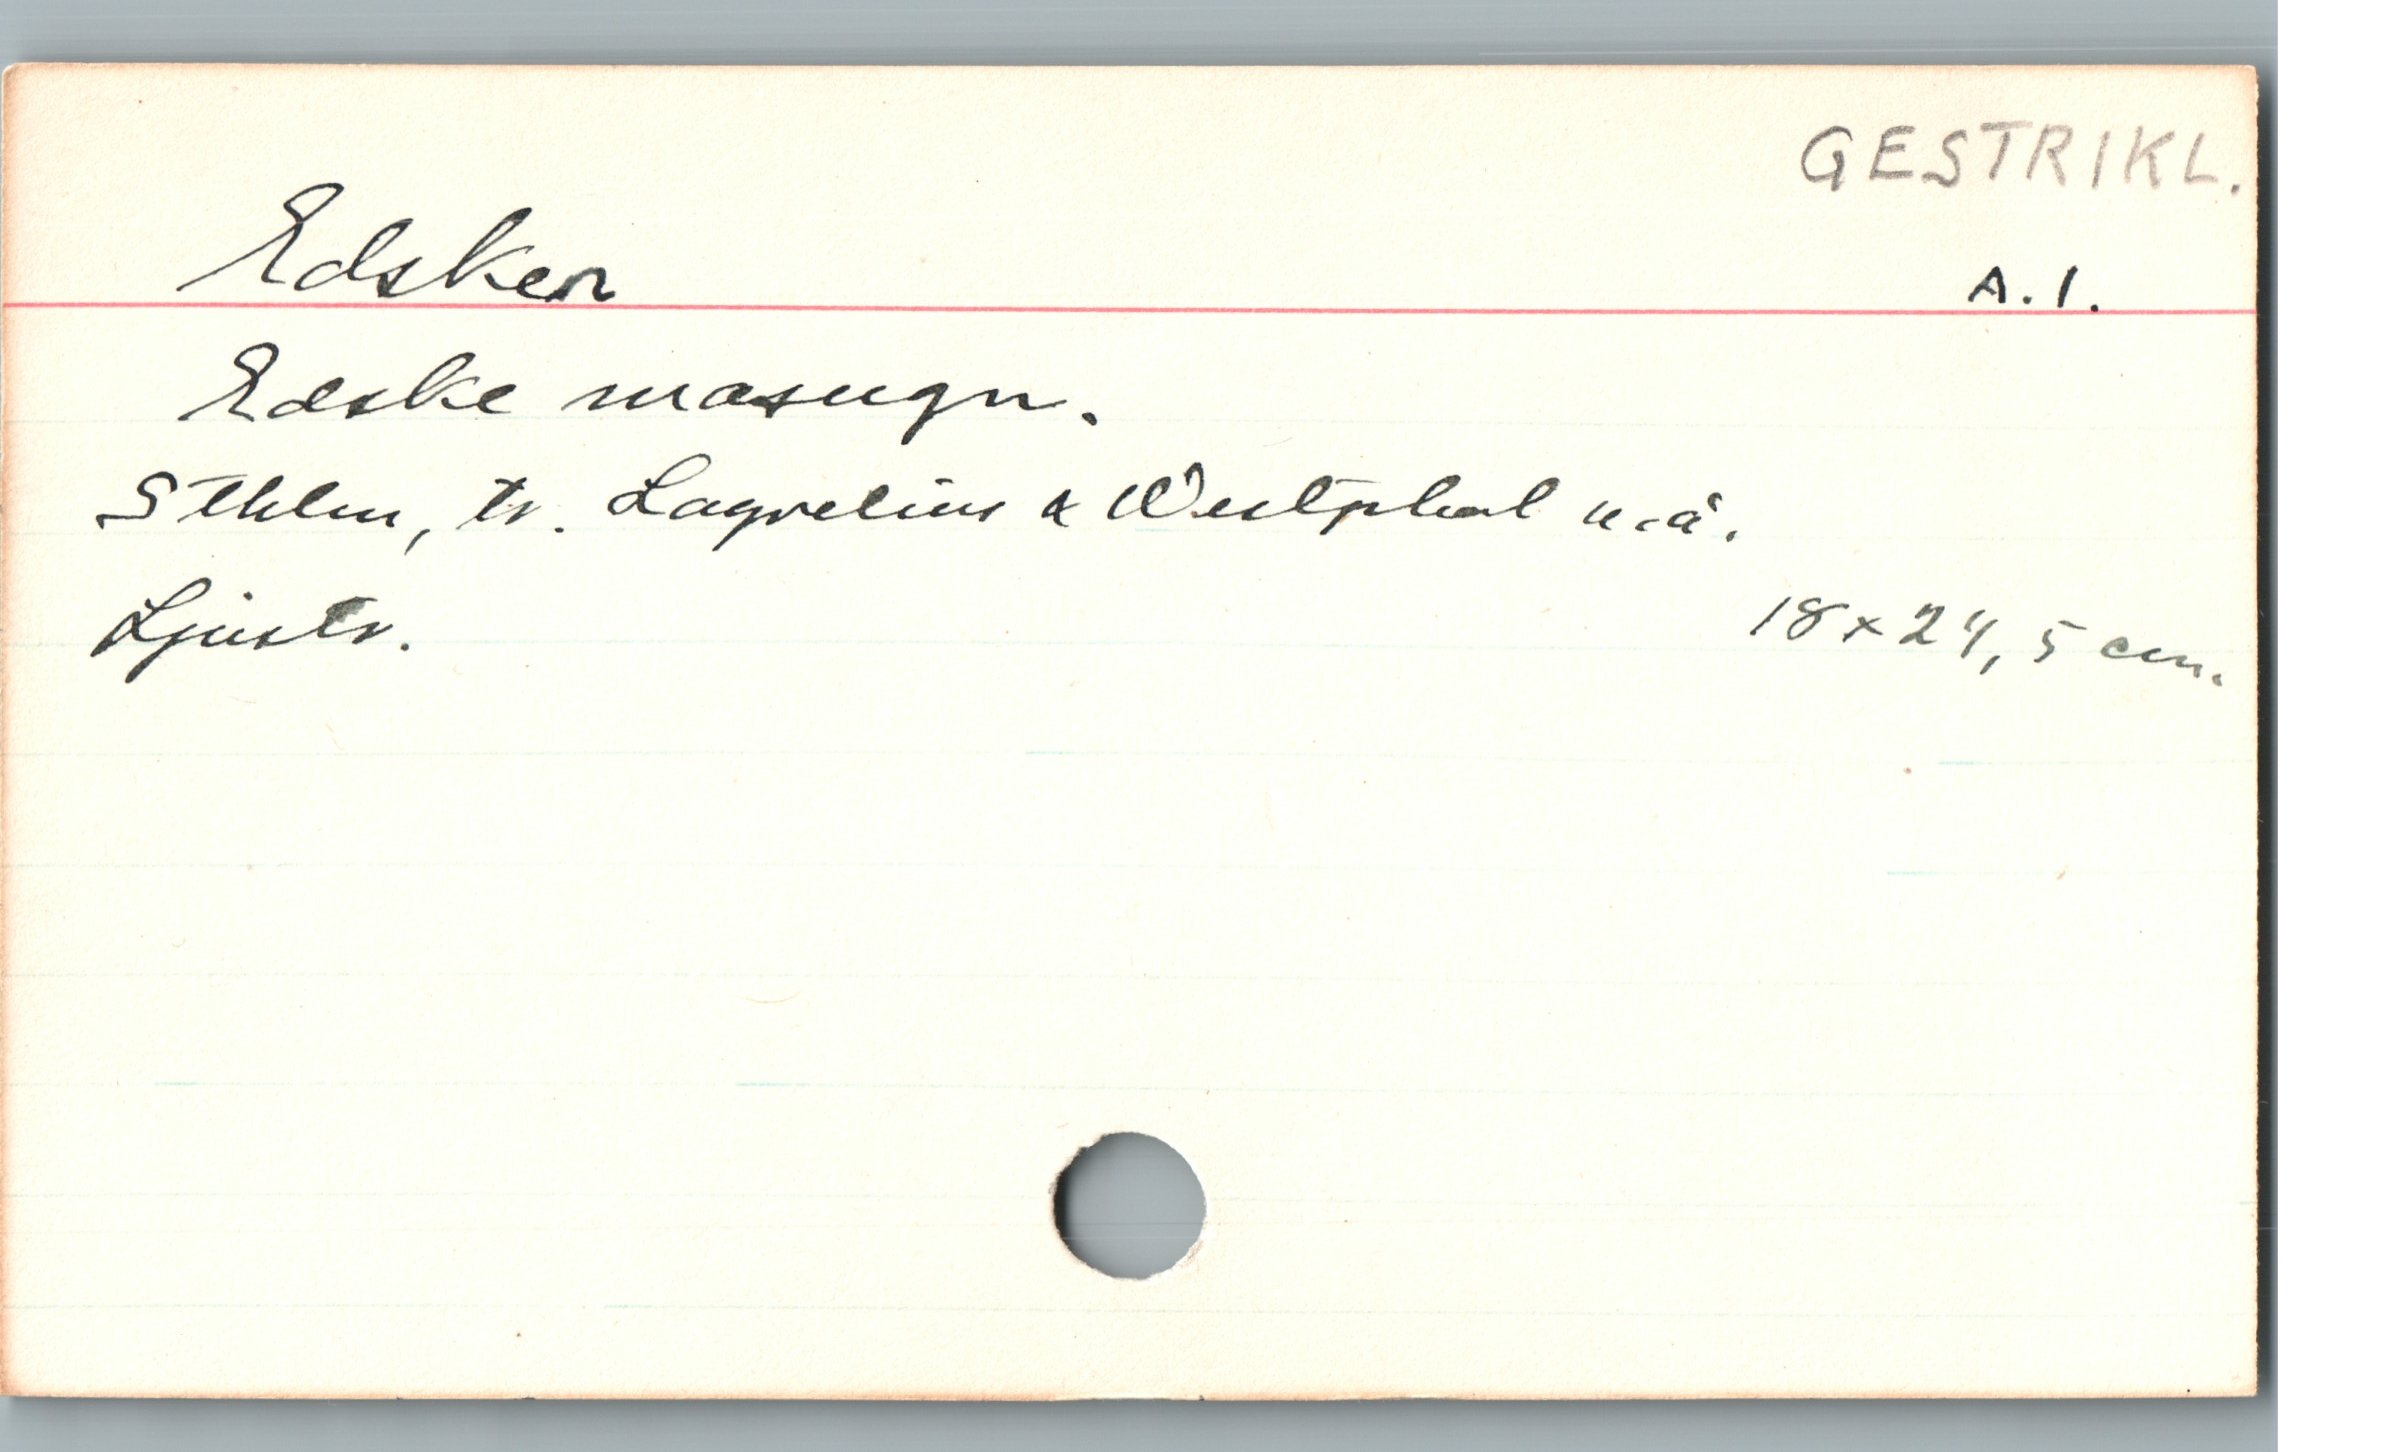 GESTRIKL.
Edsken A.1.
Edske masugn.
Sthlm, tr. Lagrelius & Westphal u.å.
Ljustr. 18x24,5 cm.